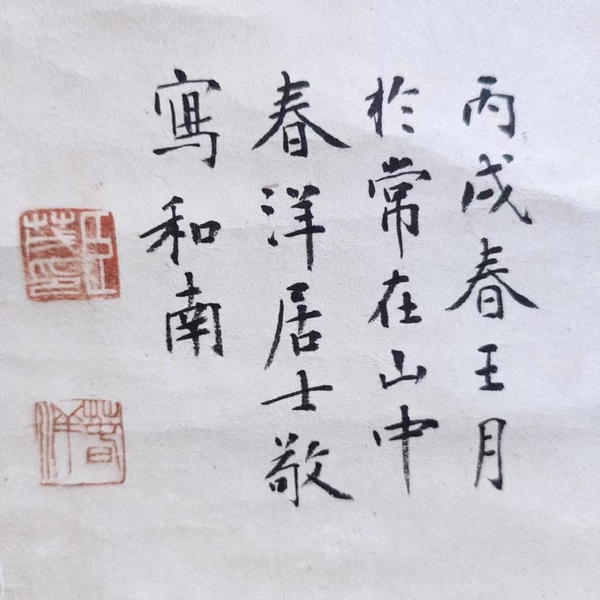 丙戌春王月
於常在山中
春洋居士敬
寫和南
春洋